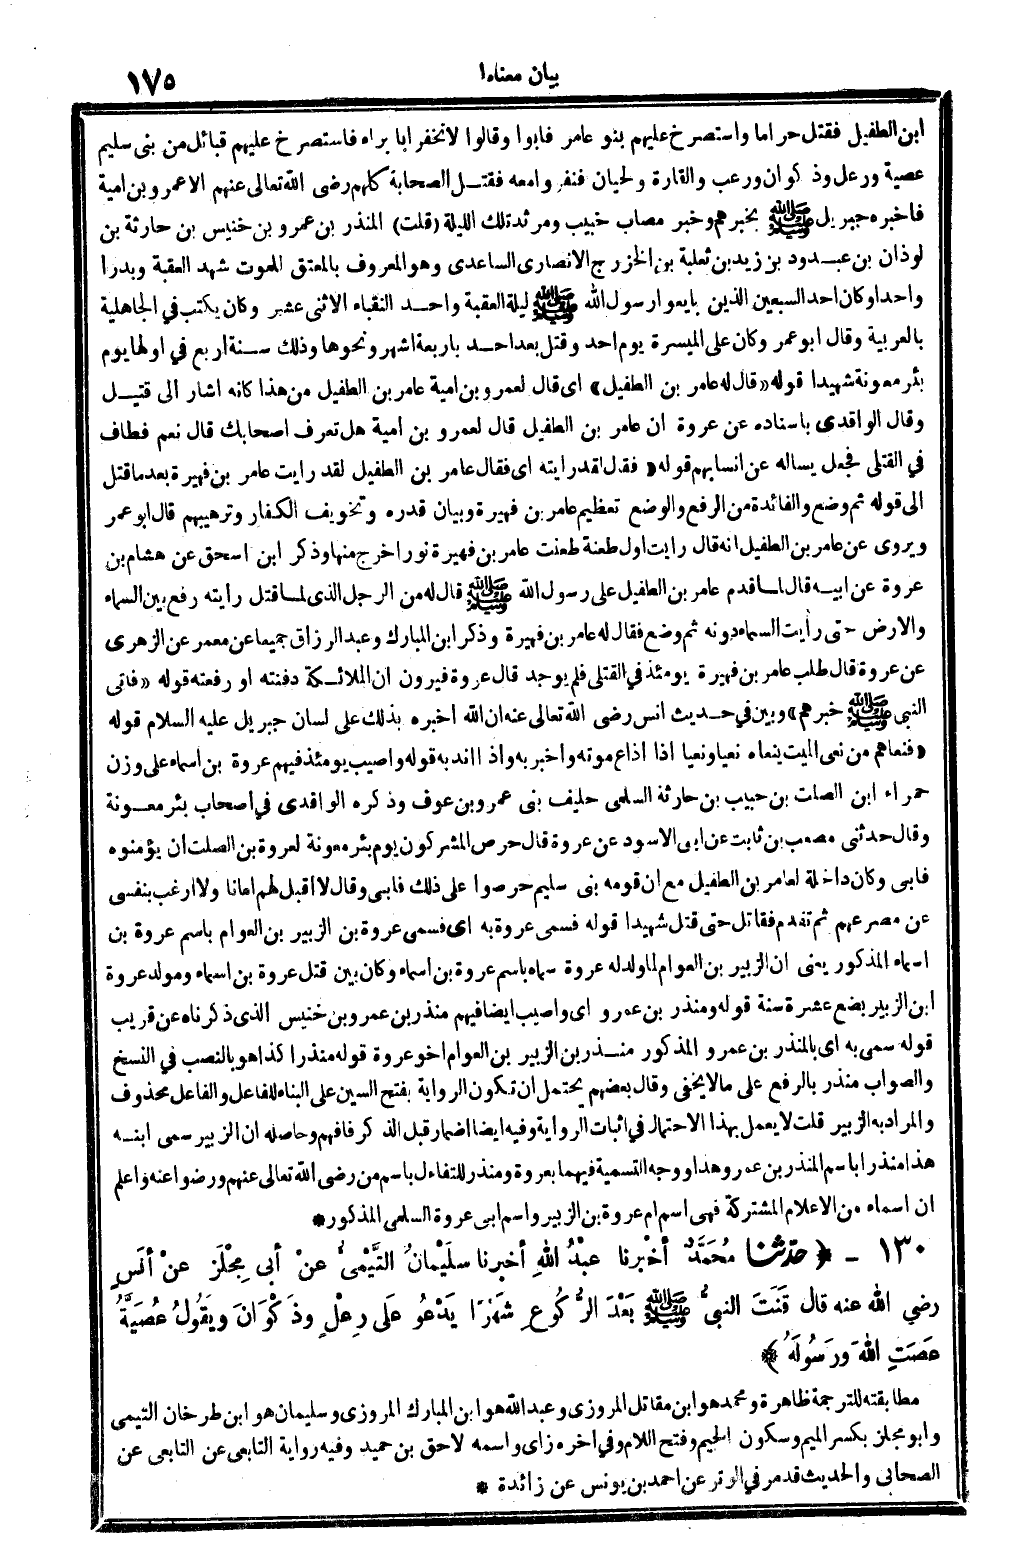 بيان معناها
١٧٥
ابن الطفيل فقتل حراما واستصرخ عليهم بنو عامر فابوا وقالوا لانخفر ابا براه فاستصرخ عليهم قبائل من بنى سليم
عصية ورعل وذكوان ورعب والقارة ولحيان فنفروا معه فقتل الصحابة كلهم رضى الله تعالى عنهم الا عمرو بن امية
فاخبره جبريل ﷺ بخبرهم وخبر مصاب خبيب ومرثد تلك الليلة (قلت) المنذر بن عمرو بن خنيس بن حارثة بن
لوذان بن عبدود بن زيد بن ثعلبة بن الخزرج الانصارى الساعدى وهو المعروف بالمعتق للموت شهد العقبة وبدرا
واحدا وكان احد السبعين الذين بايعوا رسول الله ﷺ ليلة العقبة واحد النقباء الاثنى عشر وكان يكتب في الجاهلية
بالعربية وقال ابو عمر وكان على الميسرة يوم احد وقتل بعد احد باربعة اشهر ونحوها وذلك سنة اربع في اولها يوم
بئر معونة شهيدا قوله «قال له عامر بن الطفيل» اى قال لعمرو بن امية عامر بن الطفيل من هذا كانه اشار الى قتيل
وقال الواقدى باسناده عن عروة ان عامر بن الطفيل قال لعمرو بن امية هل تعرف اصحابك قال نعم فطاف
في القتلى فجعل يساله عن انسابهم قوله «فقال لقد رايته اى فقال عامر بن الطفيل لقد رايت عامر بن فهيرة بعد ماقتل
الى قوله ثم وضع والفائدة من الرفع والوضع تعظيم عامر بن فهيرة وبيان قدره وتخويف الكفار وترهيبهم قال ابو عمر
ويروى عن عامر بن الطفيل انه قال رايت اول طعنة طعنت عامر بن فهيرة نورا خرج منها وذكر ابن اسحق عن هشام بن
عروة عن ابيه قال لما قدم عامر بن الطفيل على رسول الله ﷺ قال له من الرجل الذى لما قتل رايته رفع بين السماء
والارض حتى رأيت السماء دونه ثم وضع فقال له عامر بن فهيرة وذكر ابن المبارك وعبد الرزاق جميعا عن معمر عن الزهرى
عن عروة قال طلب عامر بن فهيرة يومئذ في القتلى فلم يوجد قال عروة فيرون ان الملائكة دفنته او رفعته قوله «فاتى
النبى ﷺ خبرهم» وبين في حديث انس رضى الله تعالى عنه ان الله اخبره بذلك على لسان جبريل عليه السلام قوله
«فنعاهم من نعى الميت ينعاه نعيا ونعيا اذا اذاع موته واخبر به واذا اندبه قوله واصيب يومئذ فيهم عروة بن اسماء على وزن
حمراء ابن الصلت بن حبيب بن حارثة السلمى حليف بنى عمرو بن عوف وذكره الواقدى في اصحاب بئر معونة
وقال حدثنى مصعب بن ثابت عن ابى الاسود عن عروة قال حرص المشركون يوم بئر معونة لعروة بن الصلت ان يؤمنوه
فابى وكان داخلة لعامر بن الطفيل مع ان قومه بنى سليم حرصوا على ذلك فابى وقال لا اقبل لهم امانا ولا ارغب بنفسى
عن مصرعهم ثم تقدم فقاتل حتى قتل شهيدا قوله فسمى عروة به اى فسمى عروة بن الزبير بن العوام باسم عروة بن
اسماء المذكور يعنى ان الزبير بن العوام لما ولد له عروة سماه باسم عروة بن اسماء وكان بين قتل عروة بن اسماء ومولد عروة
ابن الزبير بضع عشرة سنة قوله ومنذر بن عمرو اى واصيب ايضا فيهم منذر بن عمرو بن خنيس الذى ذكرناه عن قريب
قوله سمى به اى بالمنذر بن عمرو المذكور منذر بن الزبير بن العوام اخو عروة قوله منذرا كذا هو بالنصب في النسخ
والصواب منذر بالرفع على مالا يخفى وقال بعضهم يحتمل ان تكون الرواية بفتح السين على البناء للفاعل والفاعل محذوف
والمراد به الزبير قلت لا يعمل بهذا الاحتمال في اثبات الرواية وفيه ايضا اضمار قبل الذكر فافهم وحاصله ان الزبير سمى ابنه
هذا منذرا باسم المنذر بن عمرو وهذا ووجه التسمية فيهما بعروة ومنذر للتفاءل باسم من رضى الله تعالى عنهم ورضوا عنه واعلم
ان اسماء من الاعلام المشتركة فهى اسم ام عروة بن الزبير واسم ابى عروة السلمى المذكور *
١٣٠ ـ ﴿ حدّثنا مُحَمَّدٌ أخْبرنا عبْدُ اللهِ أخبرنا سلَيْمانُ التَّيْمِىُّ عنْ أبي مِجْلَزٍ عنْ أنَسٍ
رضي الله عنه قال قَنَتَ النبىُّ ﷺ بَعْدَ الرُّكُوعِ شَهْرًا يَدْعُو عَلَى رِعْلٍ وذَكْوَانَ ويَقُولُ عُصَيَّةُ
عصَتِ اللهَ ورَسُولَهُ ﴾
مطابقته للترجمة ظاهرة ومحمد هو ابن مقاتل المروزى وعبد الله هو ابن المبارك المروزى وسليمان هو ابن طرخان التيمى
وابو مجلز بكسر الميم وسكون الجيم وفتح اللام وفي اخره زاى واسمه لاحق بن حميد وفيه رواية التابعى عن التابعى عن
الصحابى والحديث قد مر في الوتر عن احمد بن يونس عن زائدة *